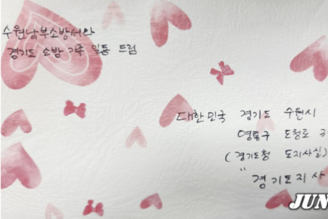 수원남부소방서와
경기도 소방 가족 일동 드림
대한민국 경기도 수원시
영통구 도청로
(경기도청 도지사실)
"경기도지사
JUN